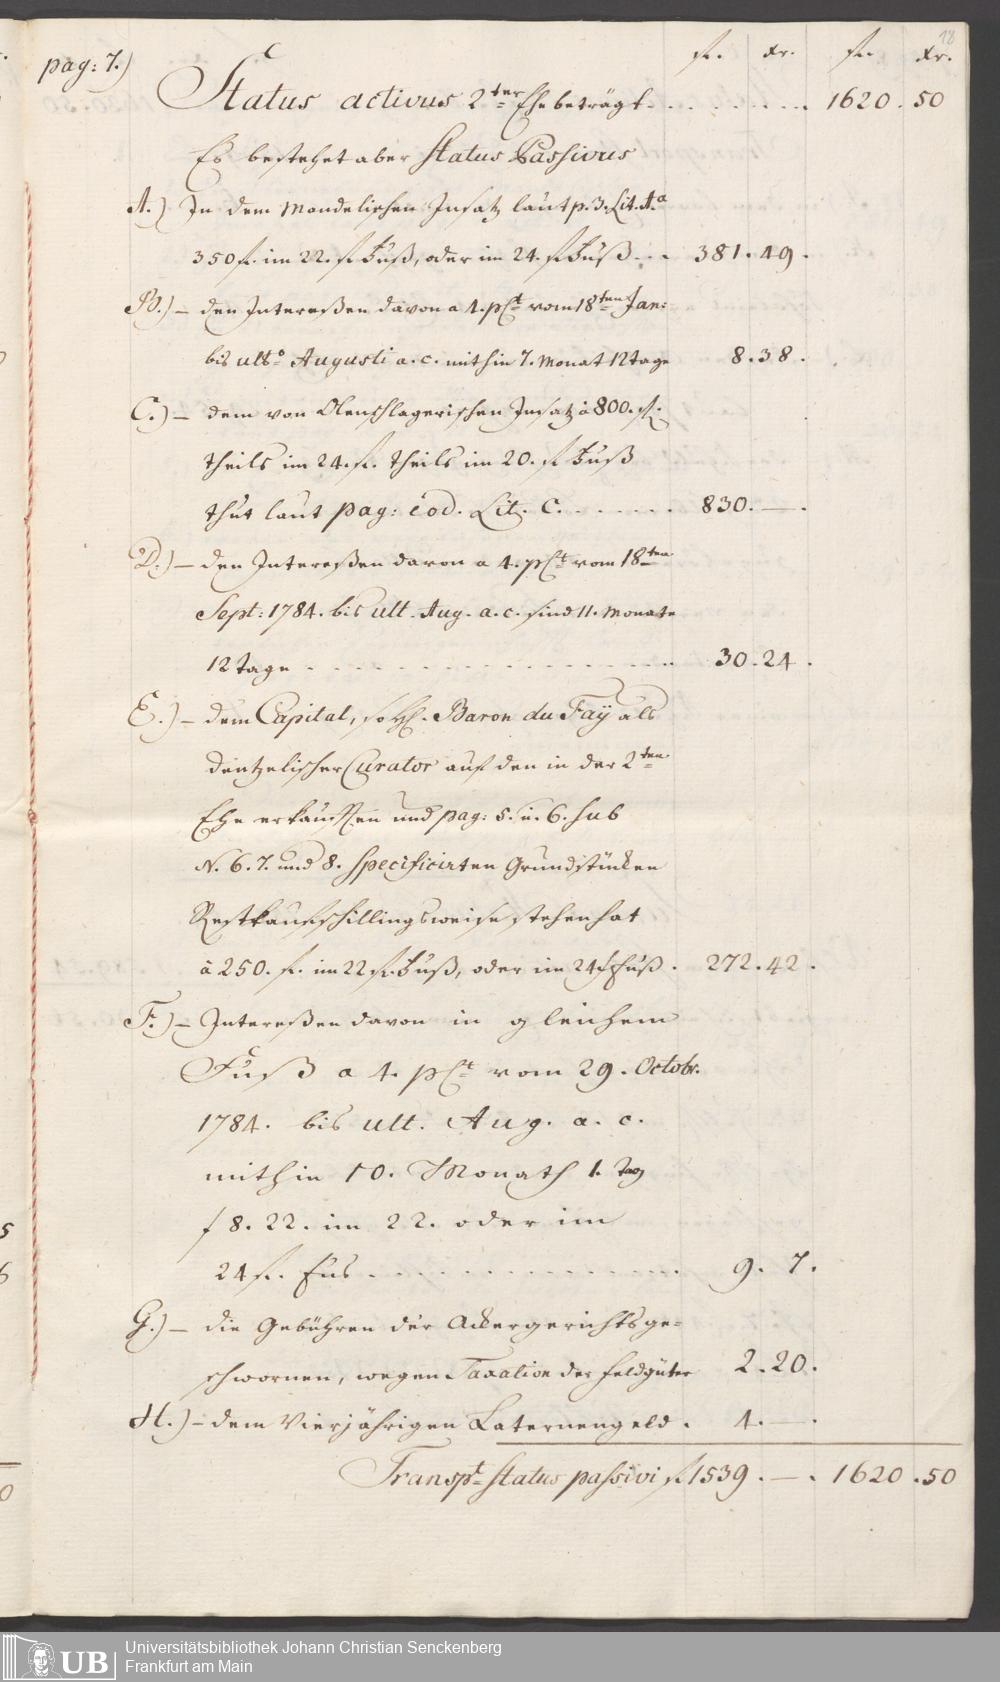 18
pag: 7.)
fl. xr. fl. xr.
Status activus 2ter Ehe beträgt . . . . . . . 1620 . 50
Es bestehet aber Status Passivus
A.) In dem Mondelischen Insatz laut p. 3. Lit. A.a
350 fl. im 22. fl Fuß, oder im 24. fl Fuß . . . 381 . 49 .
B.) – den Intereßen davon a 4. pCt vom 18ten Jan:
bis ulto Augusti a. c. mithin 7. Monat 12 tage 8 . 38 .
C.) – dem von Olenschlagerischen Insatz à 800. fl.
theils im 24. fl. theils im 20. fl Fuß
thut laut pag: eod. Lit. C. . . . . . . 830. — .
D.) – den Intereßen davon a 4. pCt vom 18ten
Sept: 1784. bis ult. Aug. a. c. sind 11. Monate
12 tage . . . . . . . . . . . . . . . . 30 . 24 .
E.) – dem Capital, so H. Baron du Faÿ als
dentzelischer Curator auf den in der 2ten
Ehe erkauften und pag: 5. u. 6. sub
N. 6. 7. und 8. specificirten Grundstücken
Restkaufschillingsweise stehen hat
à 250. fl. im 22 fl. Fuß, oder im 24 fl Fuß . 272 . 42 .
F.) – Intereßen davon in gleichem
Fuß a 4. pCt vom 29. Octobr.
1784. bis ult. Aug. a. c.
mithin 10. Monath 1. Tag
f 8. 22. im 22. oder im
24 fl. Fus . . . . . . . . . . . . . 9 . 7 .
G.) – die Gebühren der Ackergerichtsge=
schwornen, wegen Taxation der Feldgüter 2 . 20 .
H.) – dem Vierjährigen Laternengeld . 4. — .
Transpt Status passivi fl 1539 . — . 1620 . 50
UB
Universitätsbibliothek Johann Christian Senckenberg
Frankfurt am Main